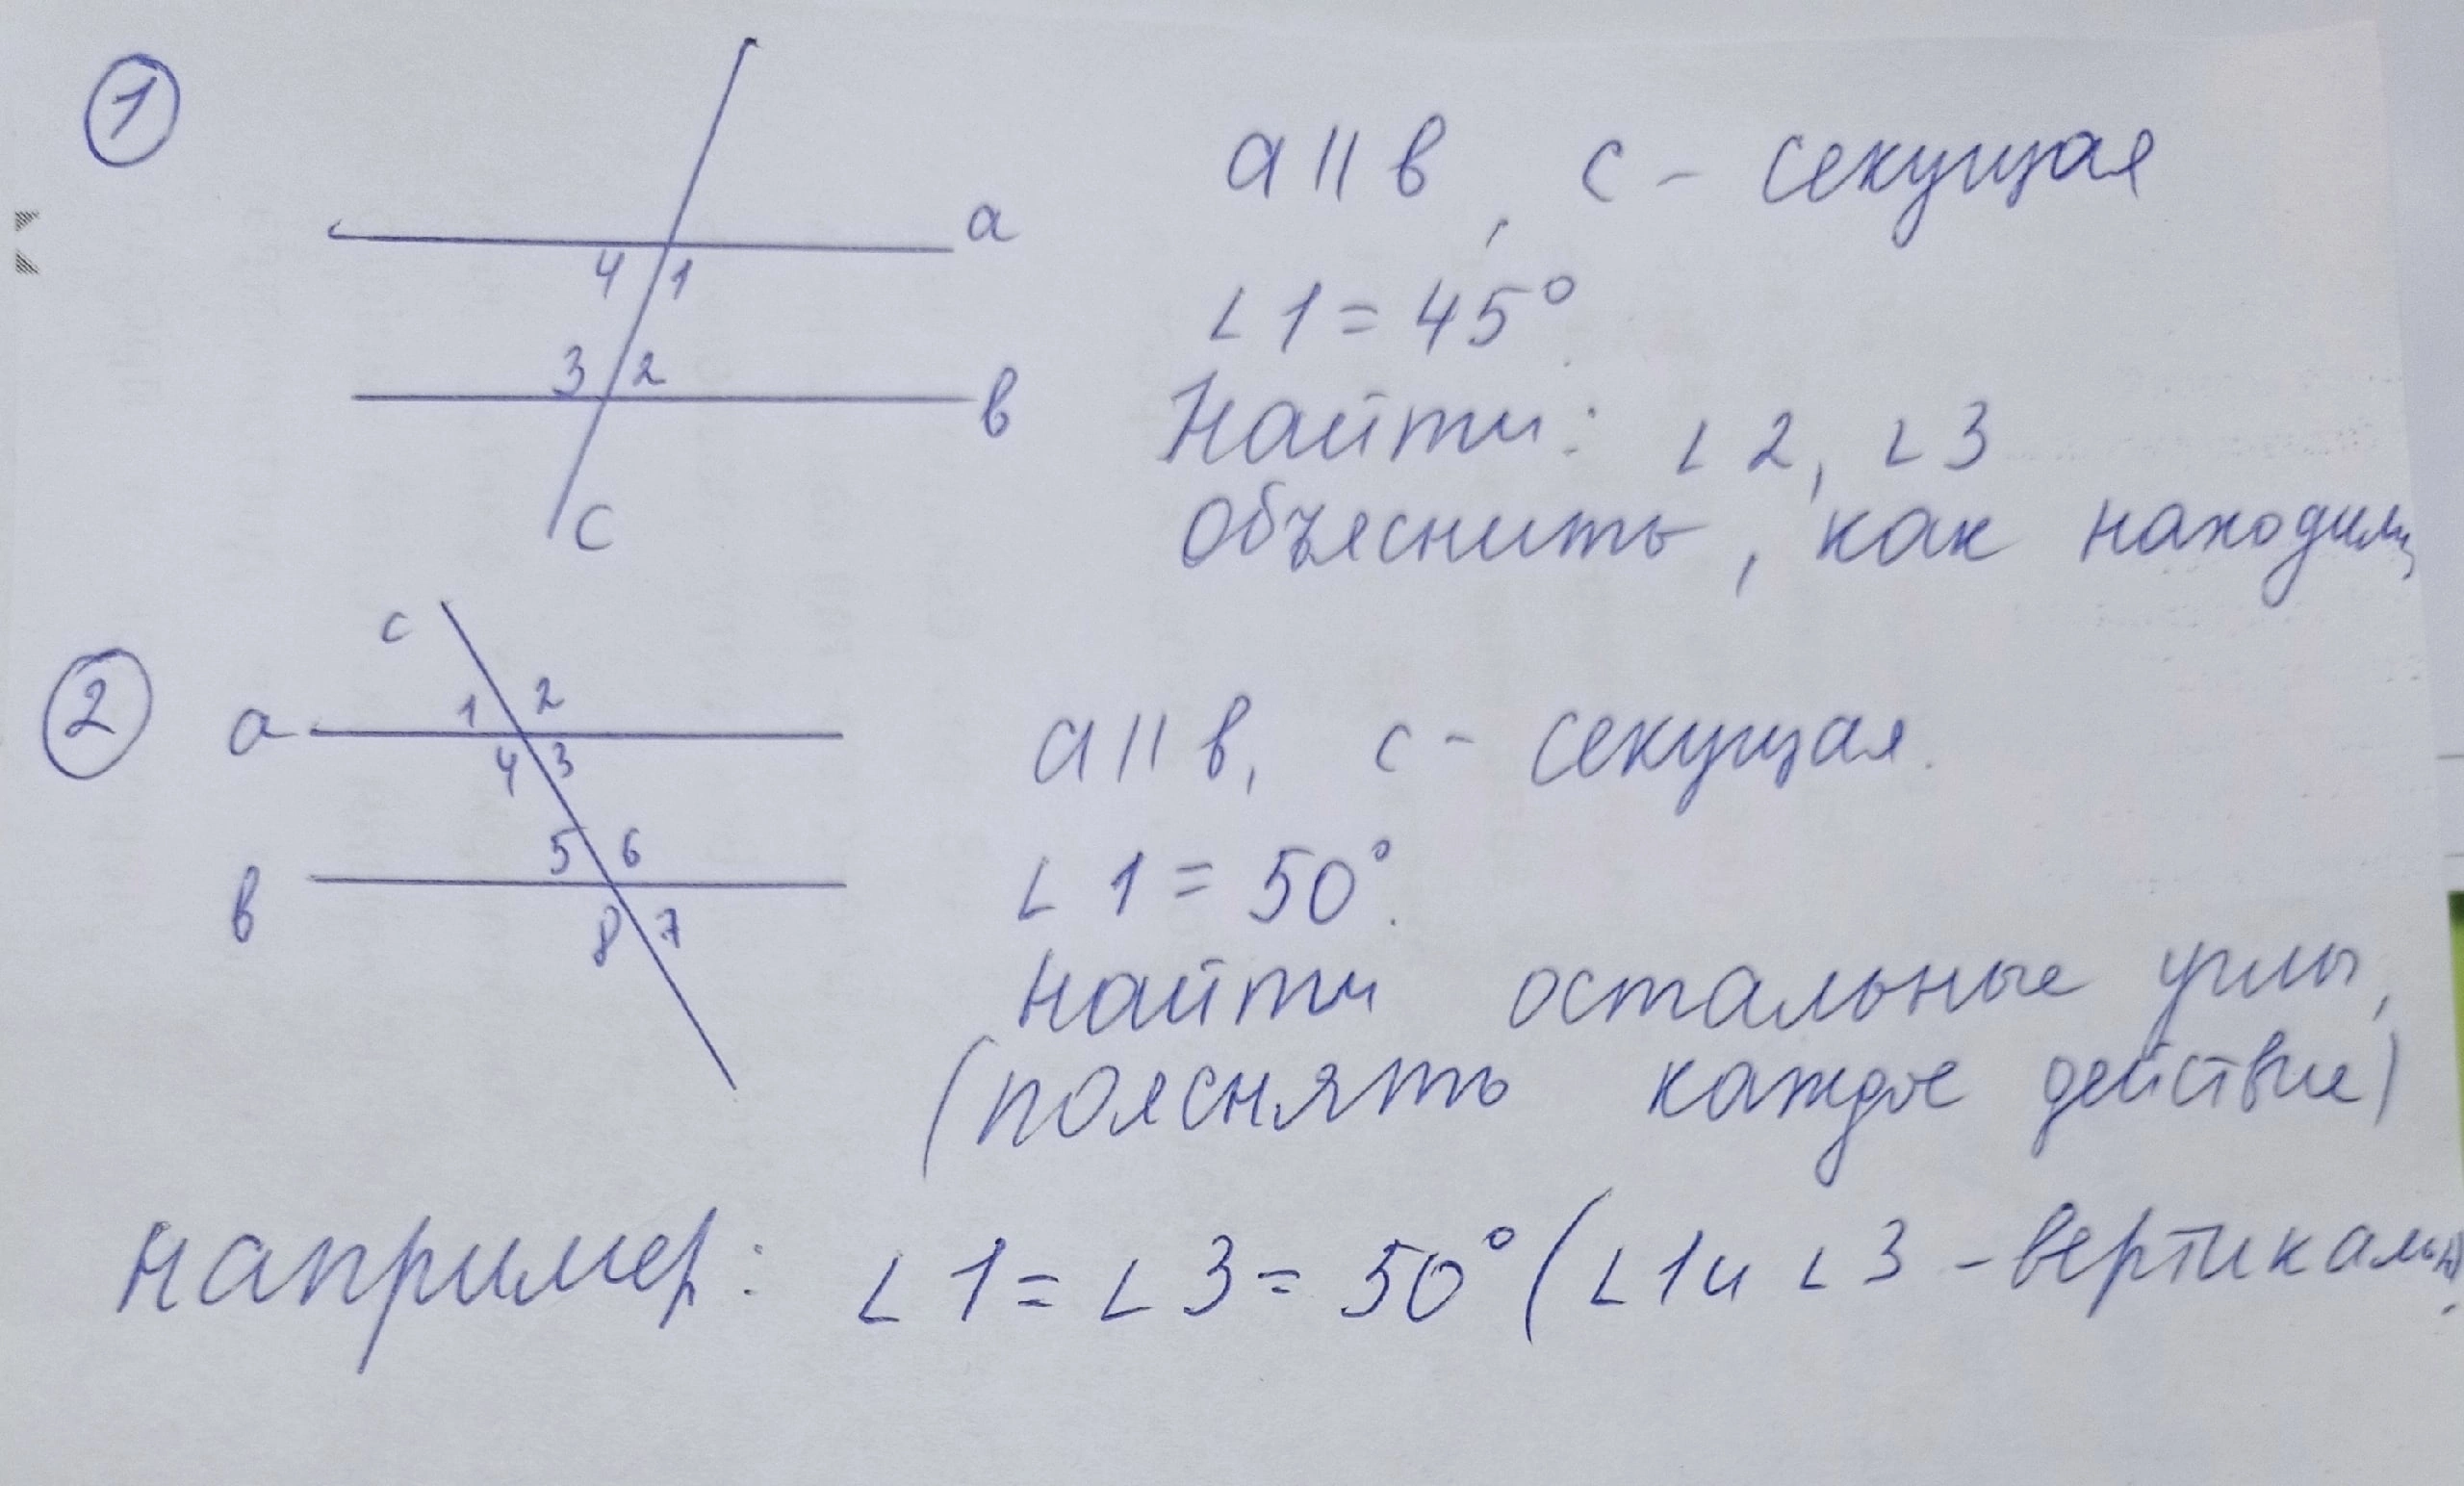 1
a
4 1
3 2
в
c
a || в, c - секущая
∠1 = 45°
Найти: ∠2, ∠3
Объяснить, как находим
2
c
1 2
a
4 3
5 6
в
8 7
a || в, c - секущая.
∠1 = 50°.
Найти остальные углы,
(пояснять каждое действие)
например: ∠1 = ∠3 = 50° (∠1 и ∠3 - вертикальн